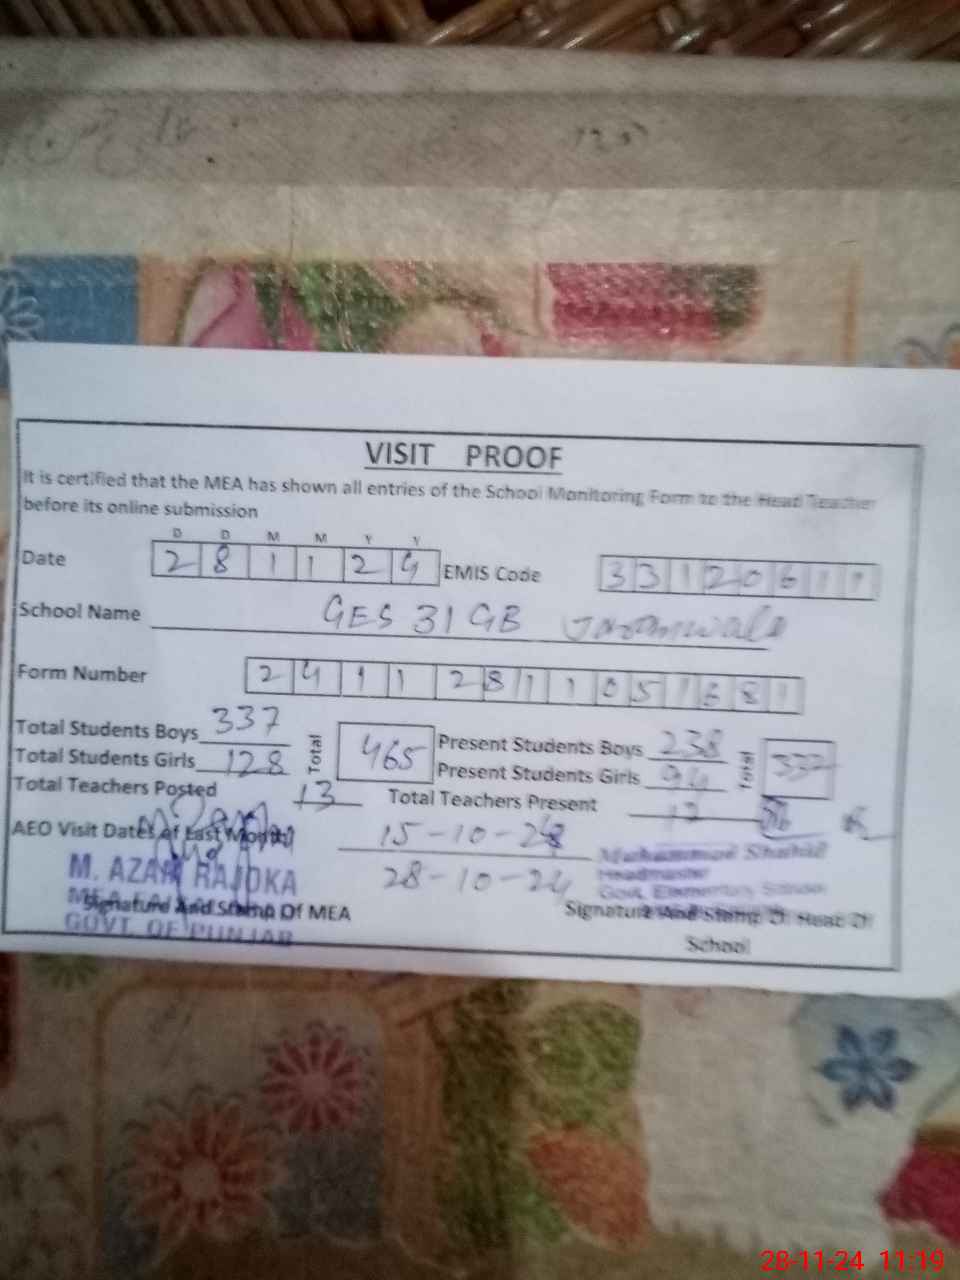 VISIT PROOF
It is certified that the MEA has shown all entries of the School Monitoring Form to the Head Teacher
before its online submission
D D M M Y Y
Date 2 8 1 1 2 4 EMIS Code 3 3 1 2 0 6 1 1
School Name GES 31 GB Jaranwala
Form Number 2 4 1 1 2 8 1 1 0 5 1 6 8 1
Total Students Boys 337 Total 465 Present Students Boys 238 Total 332
Total Students Girls 128 Present Students Girls 94
Total Teachers Posted 13 Total Teachers Present 12
AEO Visit Dates of Last Month 15-10-24
28-10-24
M. AZAM RAJOKA
MEA
GOVT. OF PUNJAB
Signature And Stamp Of MEA
Muhammad Shahid
Headmaster
Govt. Elementary School
Signature And Stamp Of Head Of
School
28-11-24 11:19